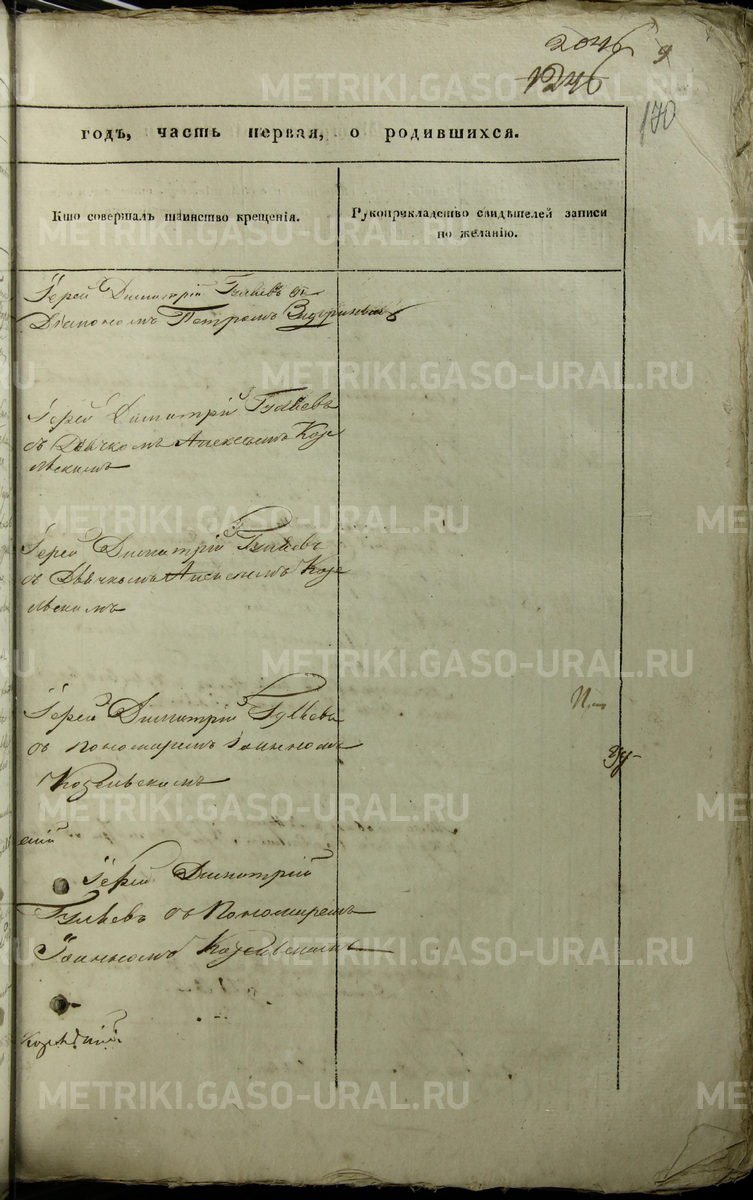 2046 9
1246
170
годъ, часть первая, о родившихся.
Кто совершалъ таинство крещенія.
Рукоприкладство свидѣтелей записи
по желанію.
Іерей Димитрій Гуляевъ съ
Діакономъ Петромъ
Іерей Димитрій Гуляевъ
съ Дьячкомъ Алексѣемъ Козе
льскимъ
Іерей Димитрій Гуляевъ
съ Дьячкомъ Алексѣемъ Козе
льскимъ
Іерей Димитрій Гуляевъ
съ пономаремъ Іоанномъ
Козельскимъ
Іерей Димитрій
Гуляевъ съ Пономаремъ
Іоанномъ Козельскимъ
METRIKI.GASO-URAL.RU